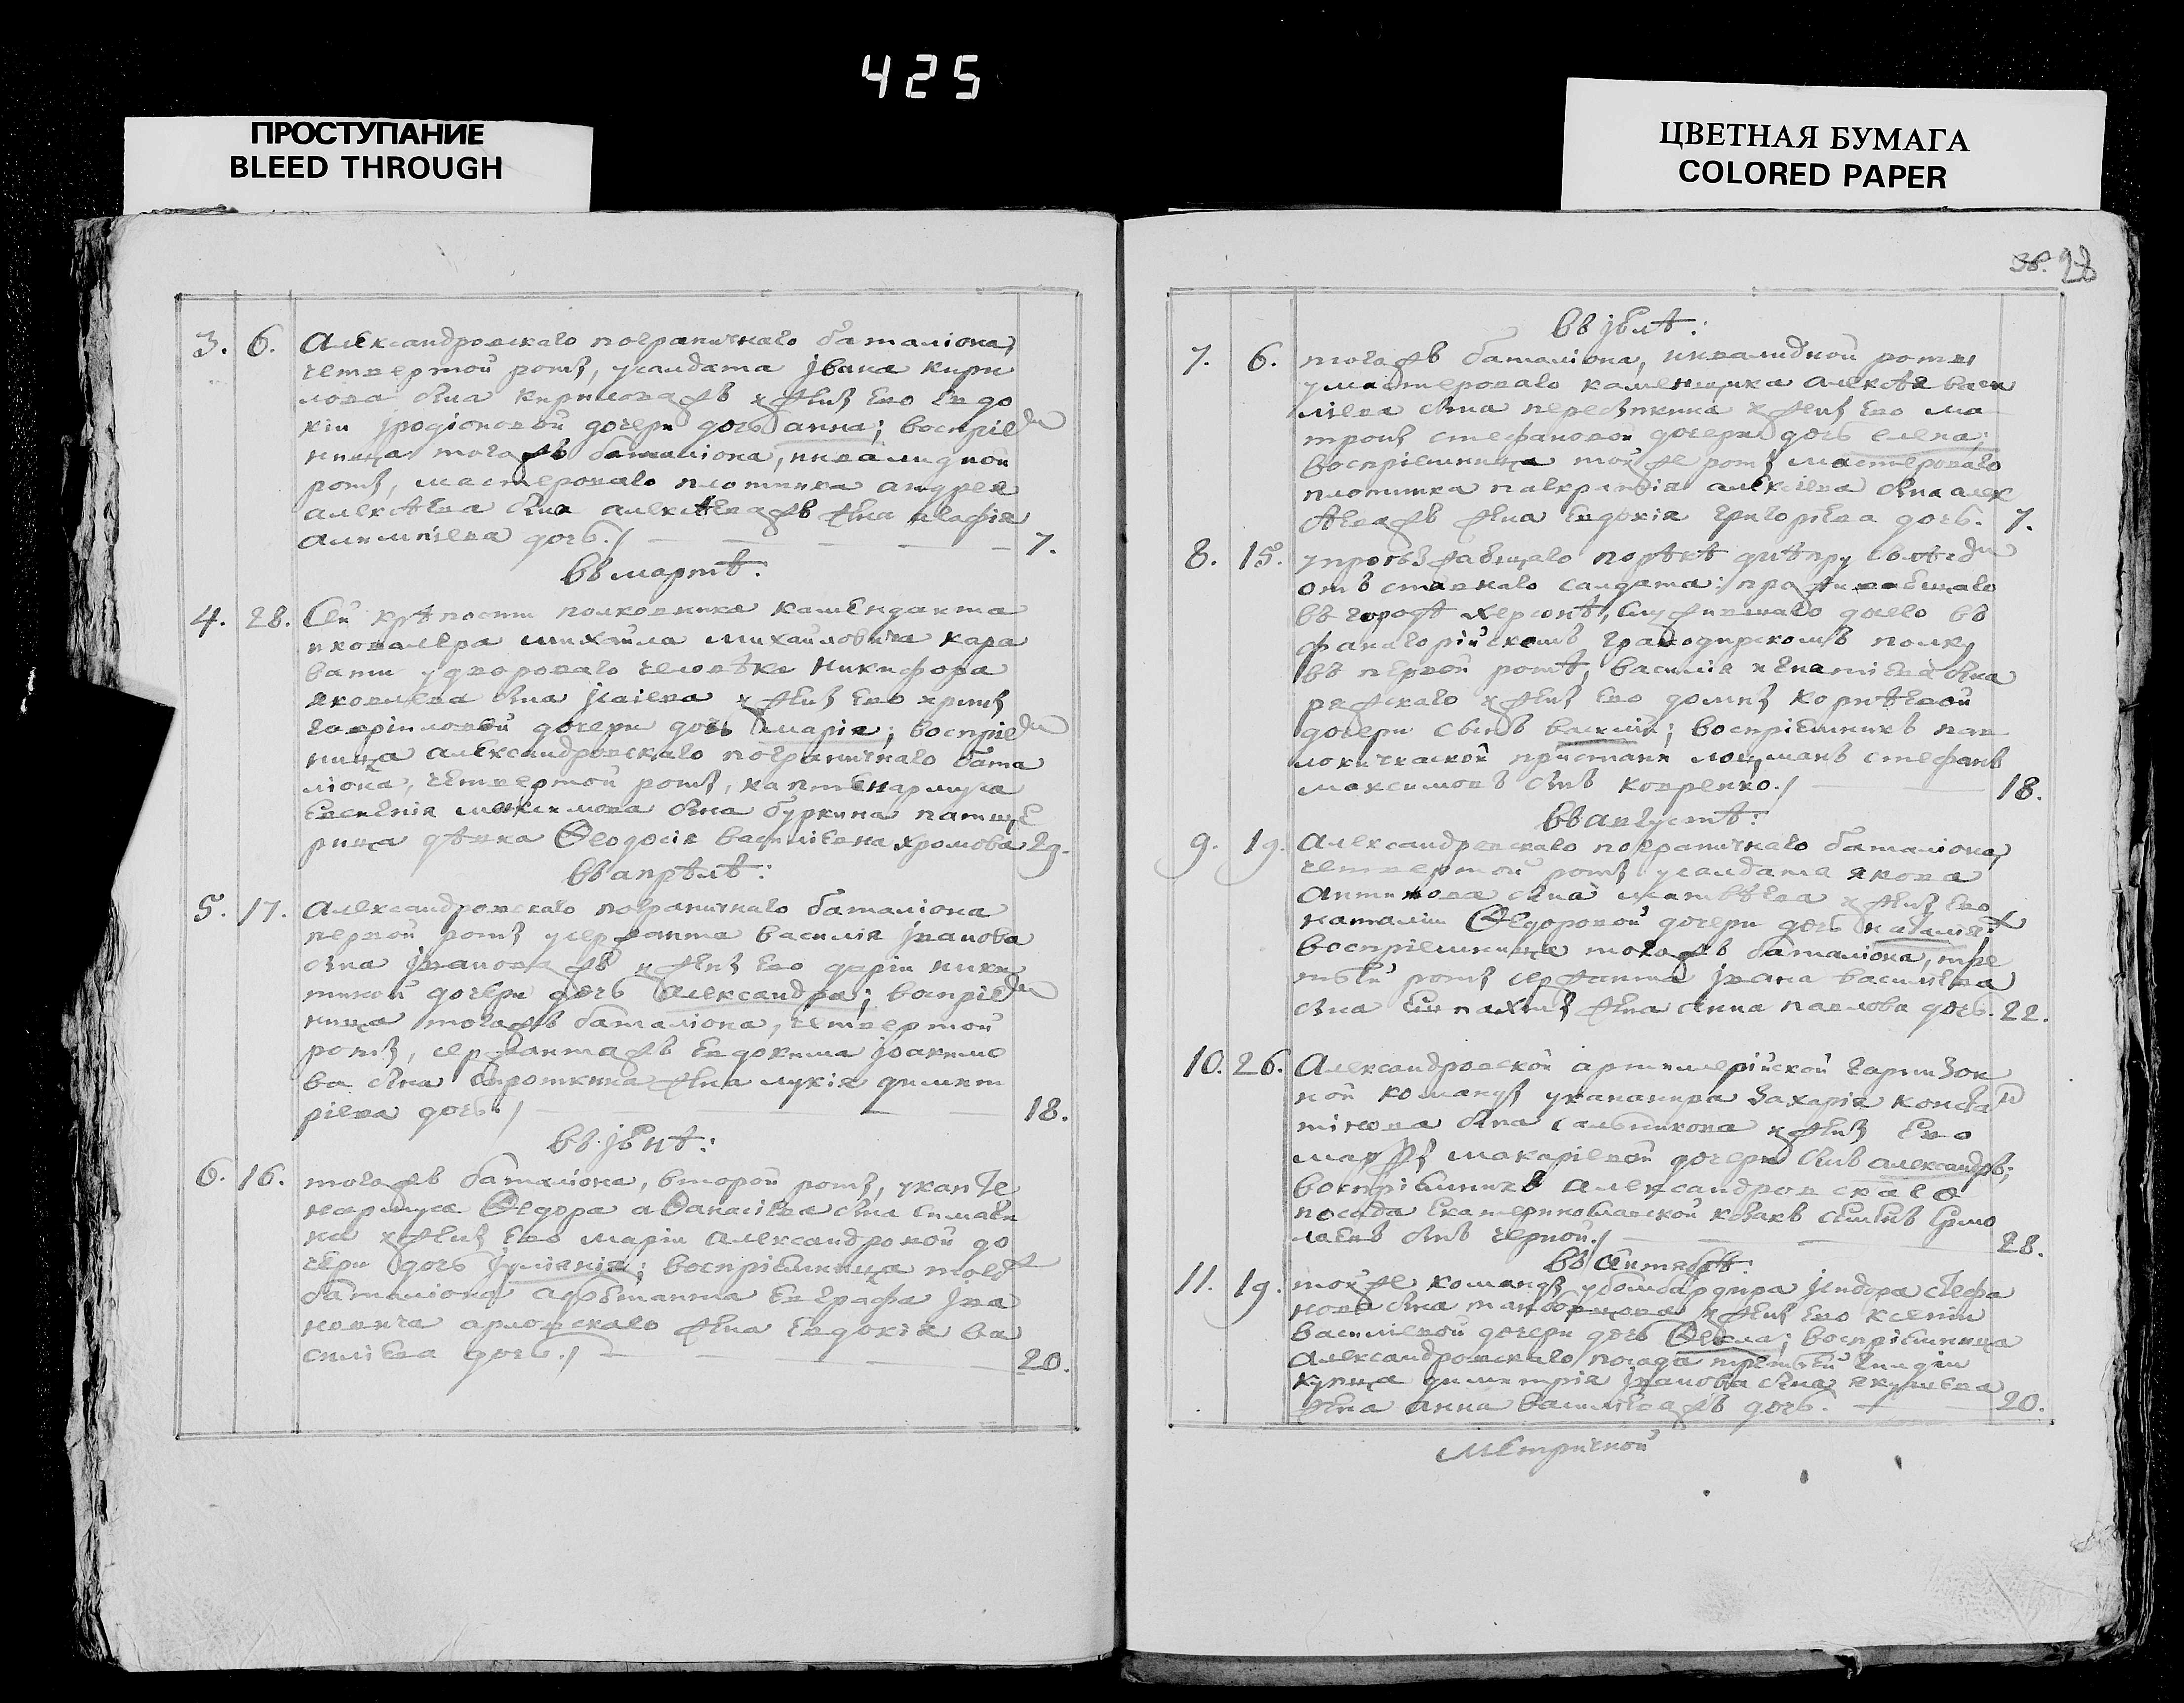 425
ПРОСТУПАНИЕ
BLEED THROUGH
ЦВЕТНАЯ БУМАГА
COLORED PAPER
28
3. 6. Александровскаго пограничнаго баталіона,
четвертой роты, усалдата Јвана Кири
лова сына Кирилова жъ и жены Ево Евдо
кіи Јродіоновой дочери дочь анна; воспріем
ница того жъ баталіона, инвалидной
роты, мастероваго плотника андрея
алексѣева сна алексѣева жъ жена
дочь. 7.
въ мартѣ:
4. 28. Сей крѣпости полковника каменданта
икавалера михаила михаиловича кара
вати удвороваго человѣка никифора
яковлева сна Јсаіева и жены Ево
гавріиловой дочери дочь марія; воспріем
ница александровскаго пограничнаго бата
ліона, четвертой роты, каптенармуса
Евсевія максимова сна буркина
дѣвка Ѳеодосія василіевна хромова 29.
въ апрѣлѣ:
5. 17. александровскаго пограничнаго баталіона
первой роты усержанта василія Јванова
сна Јванова жъ и жены Ево даріи ники
тиной дочери дочь александра; воспріем
ница того жъ баталіона, четвертой
роты, сержанта жъ Евдокима Јоакимо
ва сна сироткина жена лукія димит
ріева дочь. 18.
въ јюнѣ:
6. 16. того жъ баталіона, второй роты, укапте
нармуса Ѳедора аѲанасіева сна
и жены Ево маріи александровой до
чери дочь Јуліанія; воспріемница того жъ
баталіона адъютанта Евграфа Јва
новича арловскаго жена Евдокія ва
силіева дочь. 20.
въ јюлѣ:
7. 6. того жъ баталіона, инвалидной роты
умастероваго каменщика алексѣя васи
ліева сна и жены Ево ма
троны стефановой дочери дочь елена;
воспріемница той же роты мастероваго
плотника панкратія алексіева сна алек
сѣева жъ жена Евдокія григоріева дочь. 7.
8. 15. упроѣзжающаго порѣкѣ днѣпру
отъставнаго салдата: проживающаго
въ городѣ херсонѣ, служившаго до сего въ
фанагорійскомъ гранодирскомъ полку
въ первой ротѣ, василія игнатіева сна
и жены Ево домны корнѣевой
дочери сынъ василій; воспріемникъ пав
локичкаской пристани лоцманъ стефанъ
максимовъ снъ ковренко. 18.
въ августѣ:
9. 19. александровскаго пограничнаго баталіона,
четвертой роты усалдата якова
антипова сна матвѣева и жены Ево
наталіи Ѳедоровой дочери дочь наталія;
воспріемница того жъ баталіона, тре
тьей роты сержанта Јвана василіева
сна жена анна павлова дочь. 22.
10. 26. александровской артиллерійской гарнизон
ной команды уканонира захарія констан
тінова сна салныкова и жены Ево
марѳы макаріевой дочери снъ александръ;
воспріемникъ александровскаго
посада екатеринославской козакъ семенъ Ермо
лаевъ снъ черной. 28.
въ октябрѣ:
11. 19. той же команды убомбардира Јсидора стефа
нова сна и жены Ево ксеніи
василіевой дочери дочь Ѳекла; воспріемница
александровскаго посада третьей гилдіи
купца димитрія Јванова сна якушева
жена анна василіева жъ дочь. 20.
Метричной